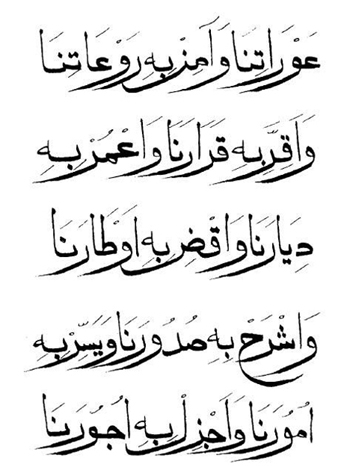 عَوْرَاتِنَا وَآمِنْ بِهِ رَوْعَاتِنَا
وَاَقِرَّ بِهِ قَرَارَنَا وَاعْمُرْ بِهِ
دِيَارَنَا وَاقْضِ بِهِ اَوْطَارَنَا
وَاشْرَحْ بِهِ صُدُورَنَا وَيَسِّرْ بِهِ
اُمُورَنَا وَاَجْزِلْ بِهِ اُجُورَنَا